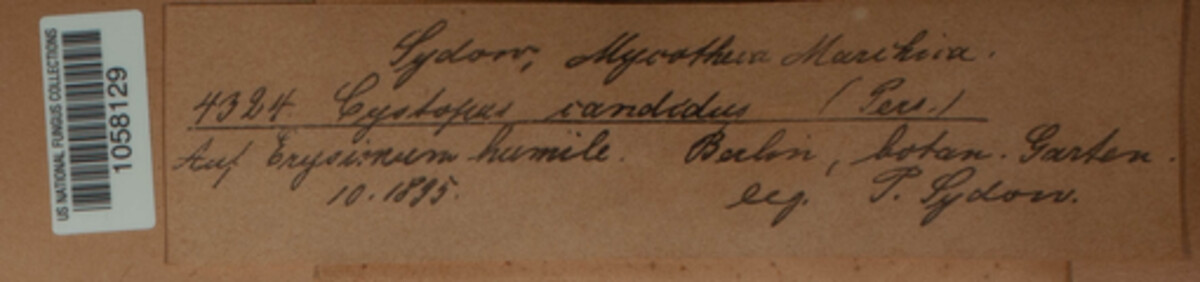 US NATIONAL FUNGUS COLLECTIONS
1058129
Sydow, Mycotheca Marchica.
4324 Cystopus candidus (Pers.)
Auf Erysimum humile. Berlin, botan. Garten.
10.1895. leg. P. Sydow.